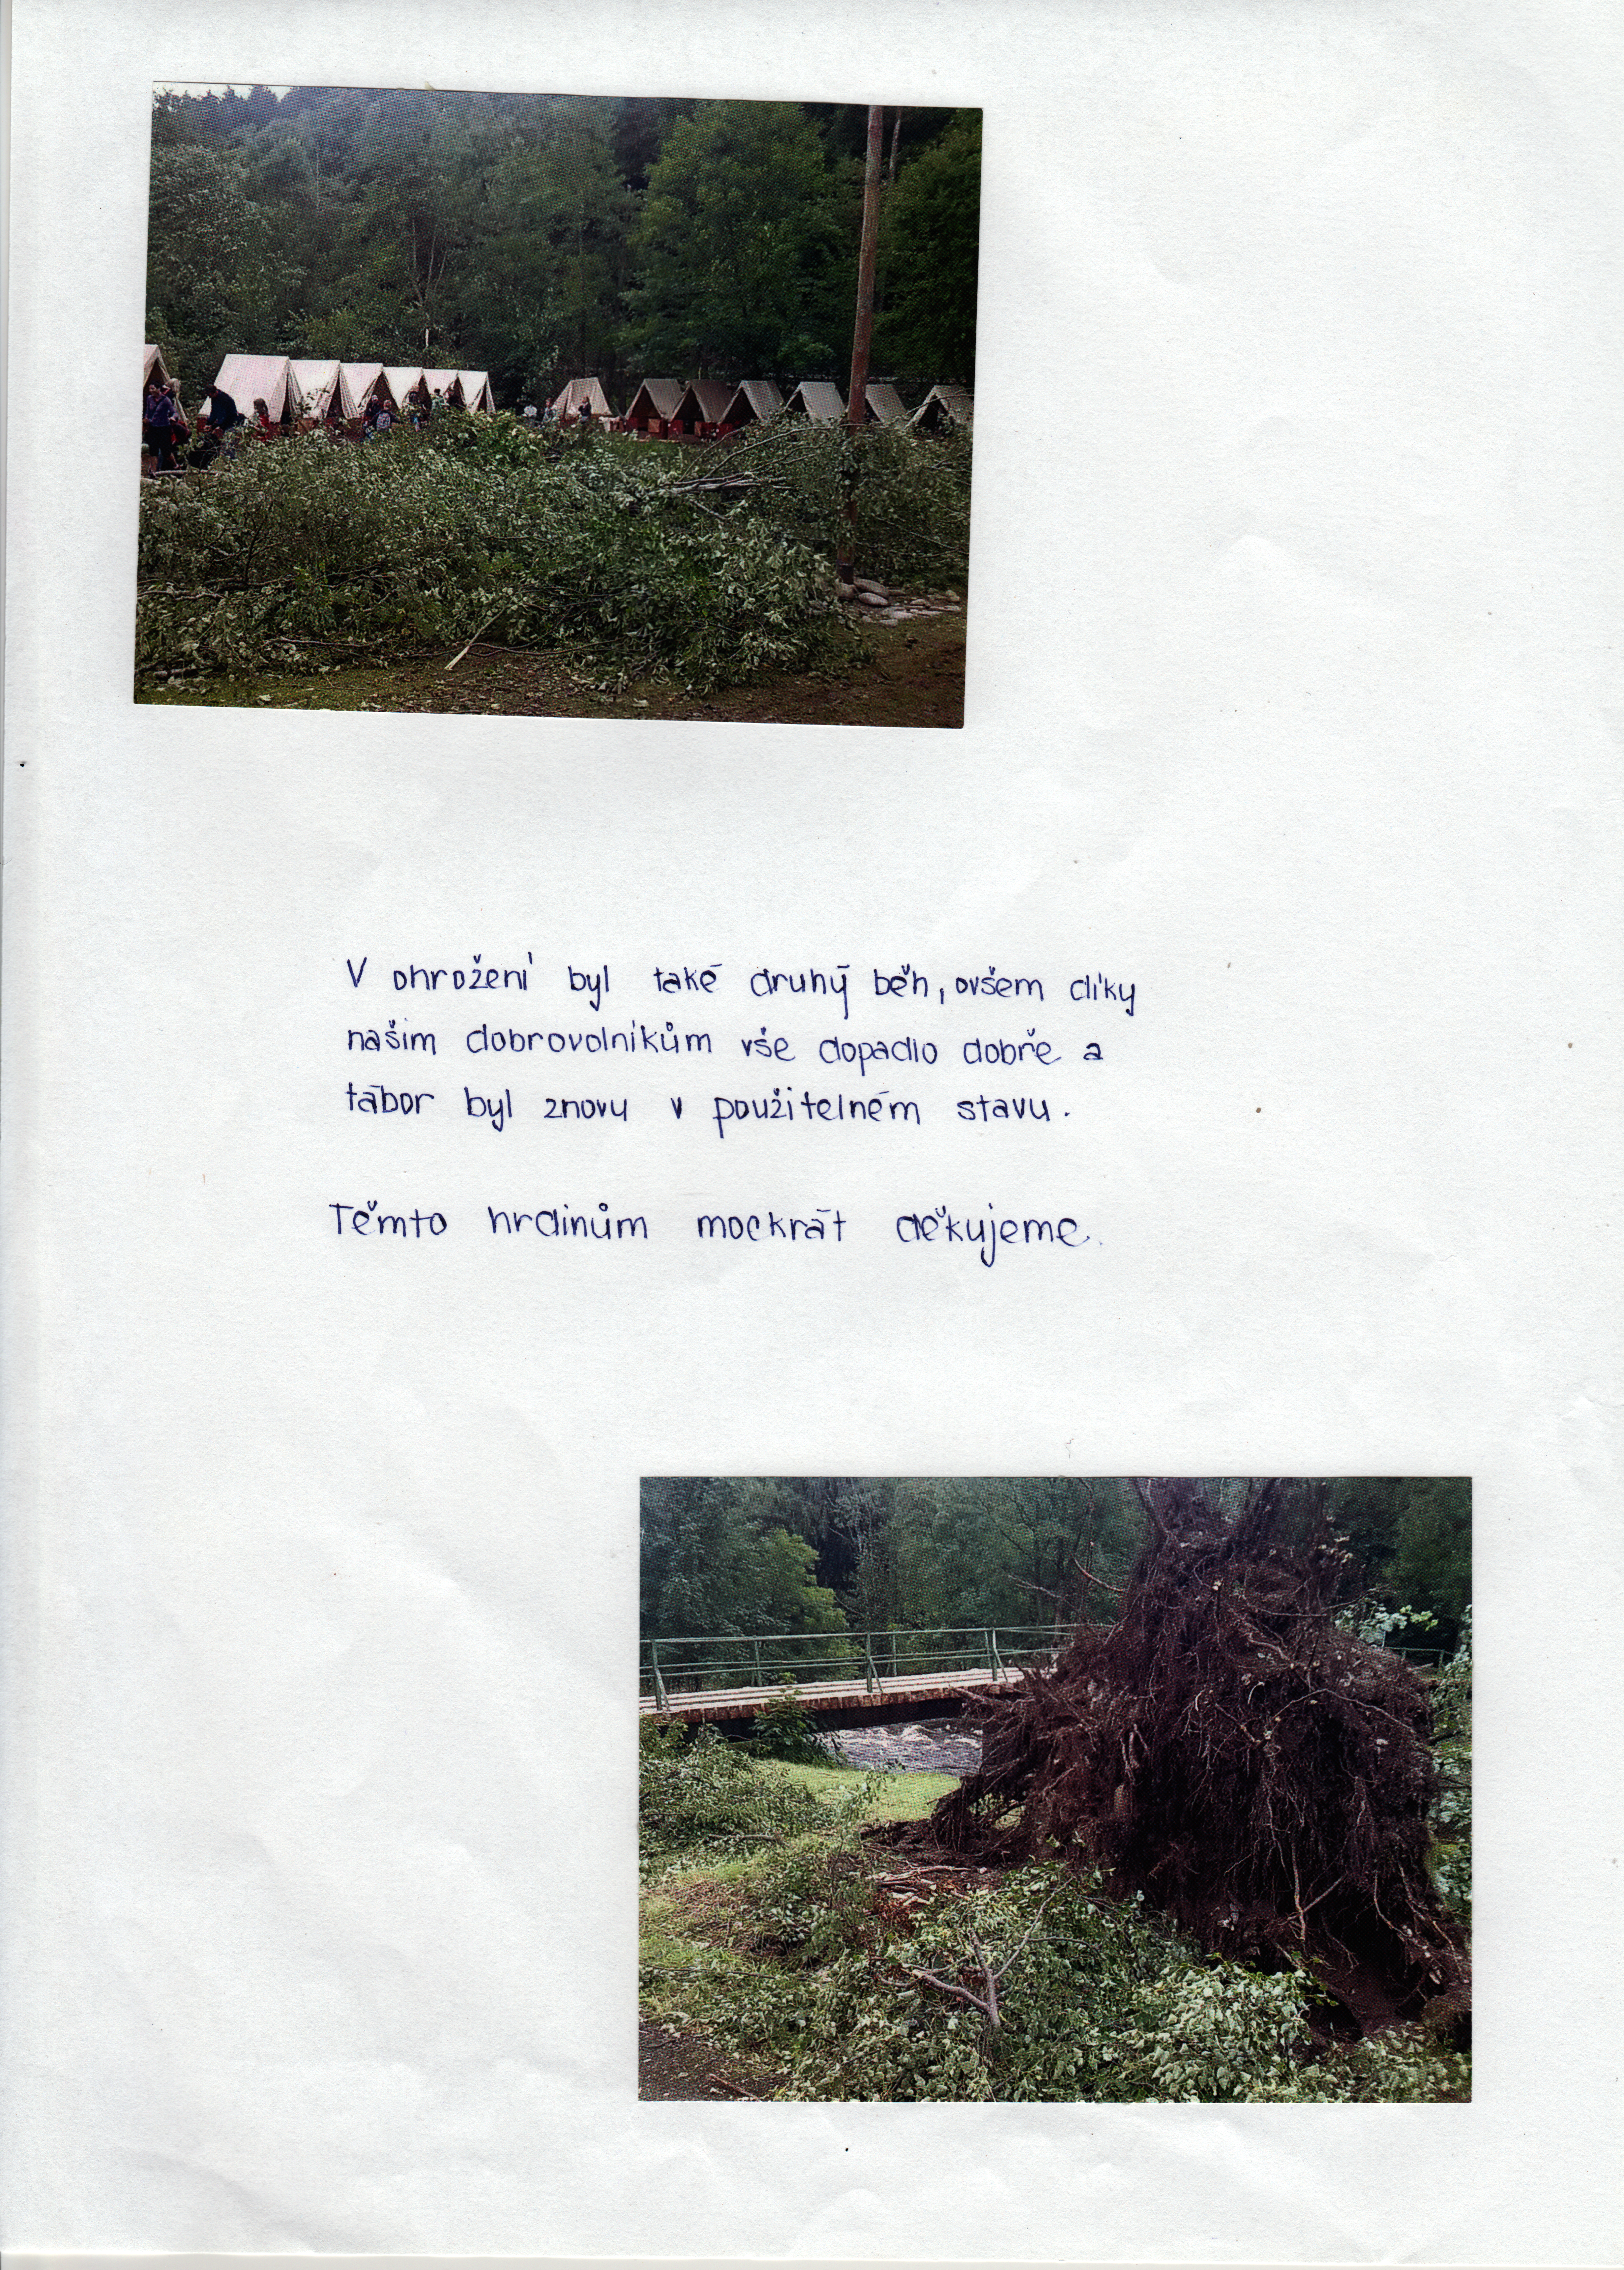 V ohrožení byl také druhý běh, ovšem díky
našim dobrovolníkům vše dopadlo dobře a
tábor byl znovu v použitelném stavu.
Těmto hrdinům mockrát děkujeme.